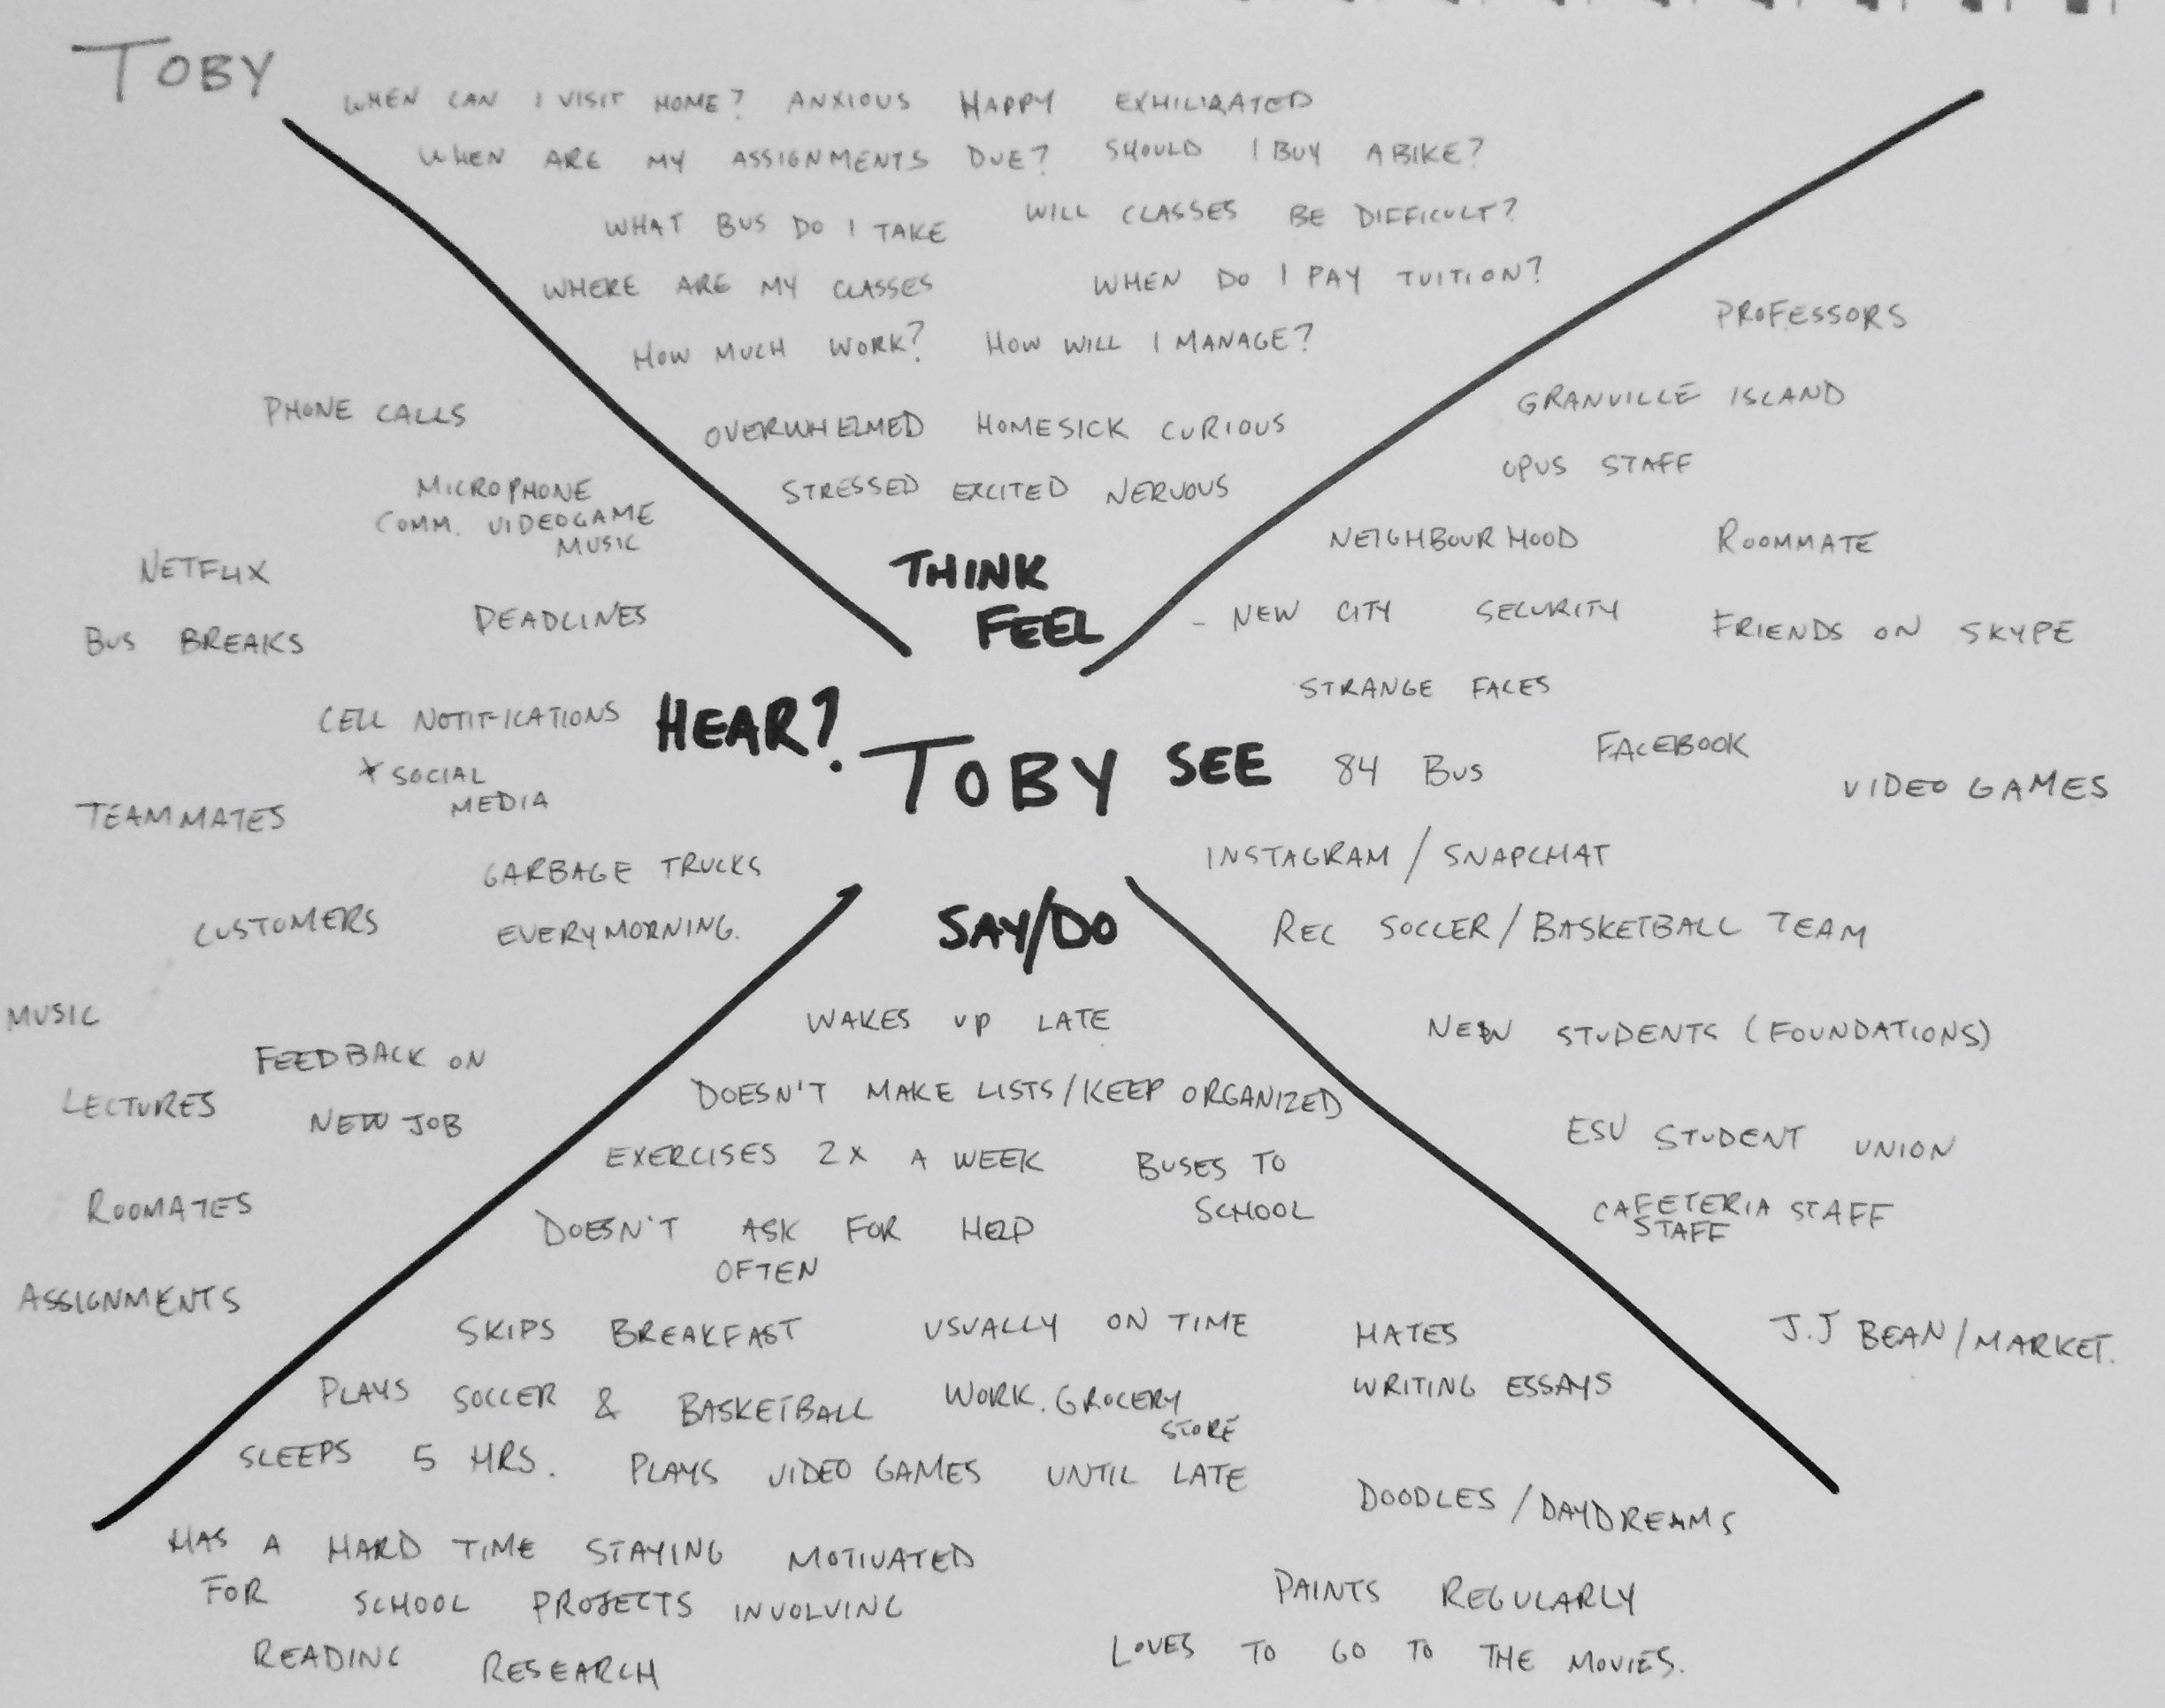 TOBY
WHEN CAN I VISIT HOME? ANXIOUS HAPPY EXHILIRATED
WHEN ARE MY ASSIGNMENTS DUE? SHOULD I BUY A BIKE?
WHAT BUS DO I TAKE WILL CLASSES BE DIFFICULT?
WHERE ARE MY CLASSES WHEN DO I PAY TUITION?
HOW MUCH WORK? HOW WILL I MANAGE?
OVERWHELMED HOMESICK CURIOUS
STRESSED EXCITED NERVOUS
THINK
FEEL
PHONE CALLS
MICROPHONE
COMM. VIDEOGAME
MUSIC
NETFLIX
DEADLINES
BUS BREAKS
CELL NOTIFICATIONS
* SOCIAL
MEDIA
HEAR?
TEAMMATES
GARBAGE TRUCKS
EVERY MORNING.
CUSTOMERS
MUSIC
FEEDBACK ON
NEW JOB
LECTURES
ROOMATES
ASSIGNMENTS
TOBY
SEE
PROFESSORS
GRANVILLE ISLAND
OPUS STAFF
NEIGHBOURHOOD ROOMMATE
- NEW CITY SECURITY FRIENDS ON SKYPE
STRANGE FACES
84 BUS FACEBOOK
VIDEO GAMES
INSTAGRAM / SNAPCHAT
REC SOCCER / BASKETBALL TEAM
NEW STUDENTS (FOUNDATIONS)
ESU STUDENT UNION
CAFETERIA STAFF
STAFF
J.J BEAN / MARKET.
SAY/DO
WAKES UP LATE
DOESN'T MAKE LISTS / KEEP ORGANIZED
EXERCISES 2X A WEEK
BUSES TO
SCHOOL
DOESN'T ASK FOR HELP
OFTEN
SKIPS BREAKFAST USUALLY ON TIME
HATES
WRITING ESSAYS
PLAYS SOCCER & BASKETBALL WORK. GROCERY
STORE
SLEEPS 5 HRS. PLAYS VIDEO GAMES UNTIL LATE
DOODLES / DAYDREAMS
HAS A HARD TIME STAYING MOTIVATED
FOR SCHOOL PROJECTS INVOLVING
READING RESEARCH
PAINTS REGULARLY
LOVES TO GO TO THE MOVIES.